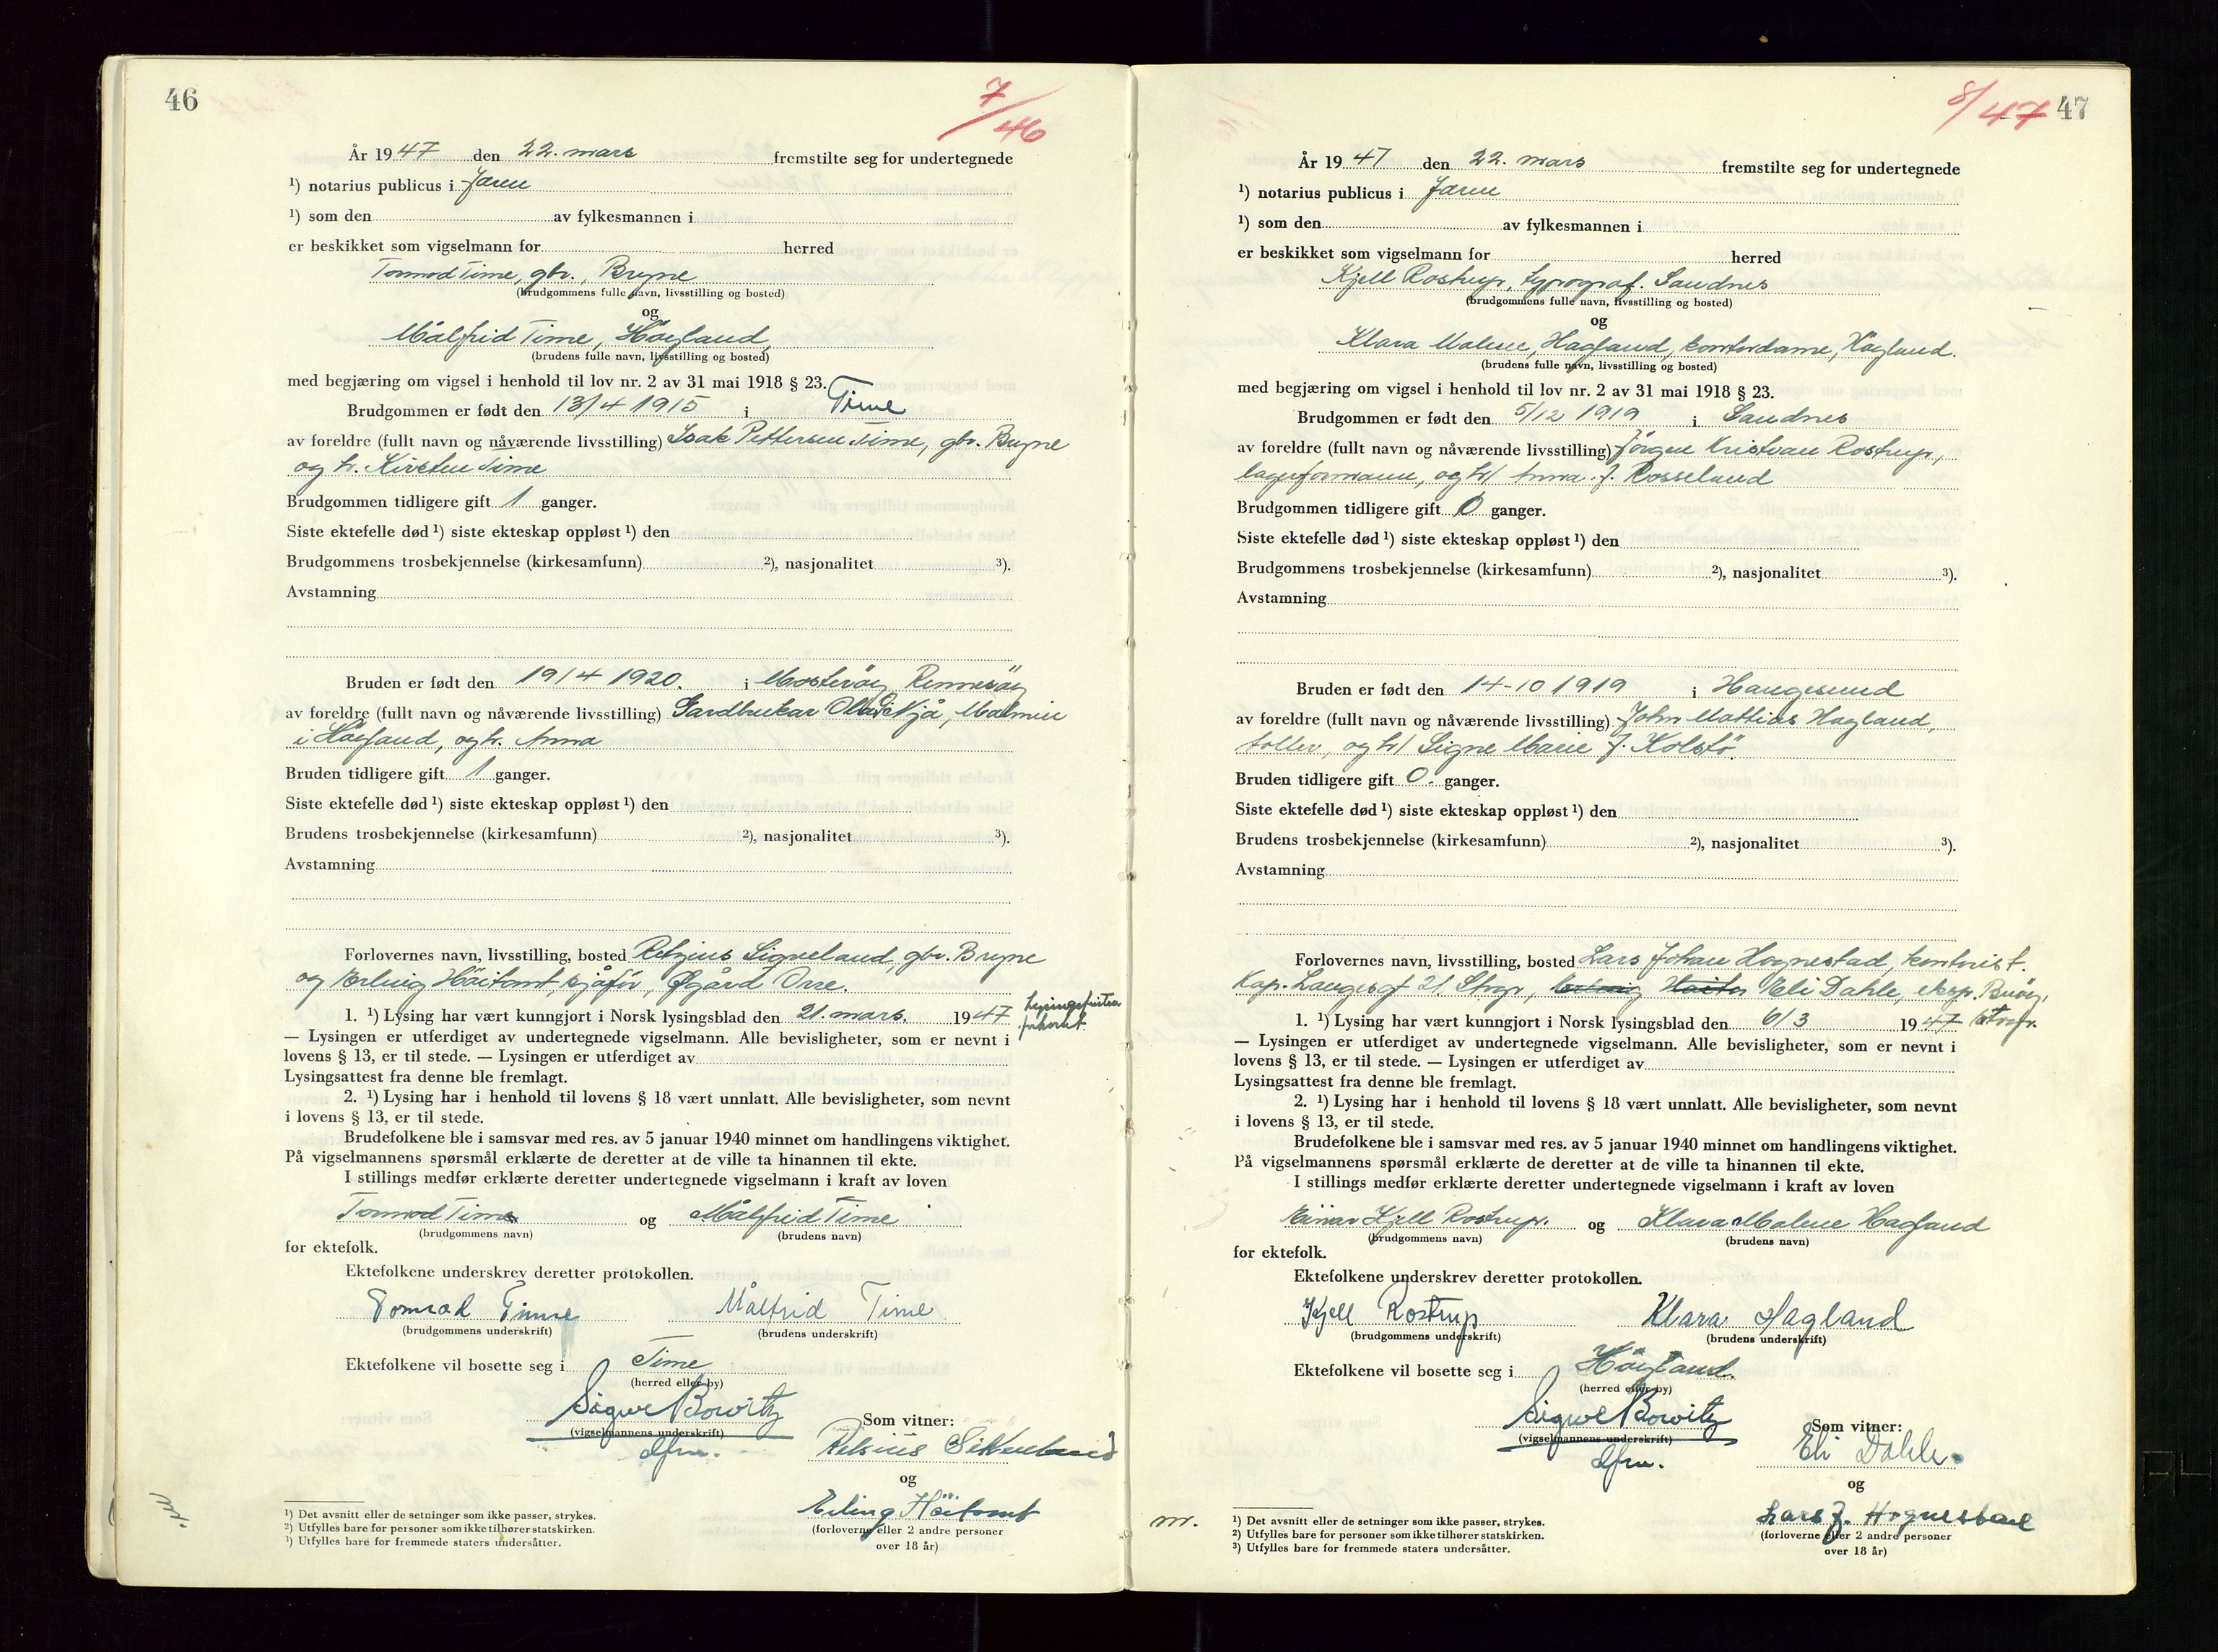 46
7/46
År 1947 den 22. mars fremstilte seg for undertegnede
¹) notarius publicus i Jæren
¹) som den av fylkesmannen i
er beskikket som vigselmann for herred
Tormod Time, gbr., Bryne
(brudgommens fulle navn, livsstilling og bosted)
og
Målfrid Time, Håyland,
(brudens fulle navn, livsstilling og bosted)
med begjæring om vigsel i henhold til lov nr. 2 av 31 mai 1918 § 23.
Brudgommen er født den 13/4 1915 i Time
av foreldre (fullt navn og nåværende livsstilling) Isak Pettersen Time, gbr. Bryne
og h. Kirsten Time
Brudgommen tidligere gift 1 ganger.
Siste ektefelle død ¹) siste ekteskap oppløst ¹) den
Brudgommens trosbekjennelse (kirkesamfunn) ²), nasjonalitet ³).
Avstamning
Bruden er født den 19/4 1920. i Mosterøy Rennesøy
av foreldre (fullt navn og nåværende livsstilling) Gardbrukar Olav Kjå, Malmin
i Høyland, og h. Anna
Bruden tidligere gift 1 ganger.
Siste ektefelle død ¹) siste ekteskap oppløst ¹) den
Brudens trosbekjennelse (kirkesamfunn) ²), nasjonalitet ³).
Avstamning
Forlovernes navn, livsstilling, bosted Sigveland, gbr. Bryne
og Erling Höitomt, sjåför, Øgård Orre.
1. ¹) Lysing har vært kunngjort i Norsk lysingsblad den 21. mars. 1947 Lysingsfristen
— Lysingen er utferdiget av undertegnede vigselmann. Alle bevisligheter, som er nevnt i
lovens § 13, er til stede. — Lysingen er utferdiget av
Lysingsattest fra denne ble fremlagt.
2. ¹) Lysing har i henhold til lovens § 18 vært unnlatt. Alle bevisligheter, som nevnt
i lovens § 13, er til stede.
Brudefolkene ble i samsvar med res. av 5 januar 1940 minnet om handlingens viktighet.
På vigselmannens spørsmål erklærte de deretter at de ville ta hinannen til ekte.
I stillings medfør erklærte deretter undertegnede vigselmann i kraft av loven
Tormod Time og Målfrid Time
(brudgommens navn) (brudens navn)
for ektefolk.
Ektefolkene underskrev deretter protokollen.
Tormod Time Målfrid Time
(brudgommens underskrift) (brudens underskrift)
Ektefolkene vil bosette seg i Time
(herred eller by)
Sigwel Bowitz
(vigselmannens underskrift)
dfm.
Som vitner:
og
Erling Höitomt
(forloverne eller 2 andre personer
over 18 år)
¹) Det avsnitt eller de setninger som ikke passer, strykes.
²) Utfylles bare for personer som ikke tilhører statskirken.
³) Utfylles bare for fremmede staters undersåtter.
8/47 47
År 1947 den 22. mars fremstilte seg for undertegnede
¹) notarius publicus i Jæren
¹) som den av fylkesmannen i
er beskikket som vigselmann for herred
Kjell Rostrup, typograf. Sandnes
(brudgommens fulle navn, livsstilling og bosted)
og
Klara Malene, Hagland, kontordame, Høyland.
(brudens fulle navn, livsstilling og bosted)
med begjæring om vigsel i henhold til lov nr. 2 av 31 mai 1918 § 23.
Brudgommen er født den 5/12 1919 i Sandnes
av foreldre (fullt navn og nåværende livsstilling) Jörgen Kristian Rostrup,
lagerformann, og h/ Anna. f. Rosseland
Brudgommen tidligere gift 0 ganger.
Siste ektefelle død ¹) siste ekteskap oppløst ¹) den
Brudgommens trosbekjennelse (kirkesamfunn) ²), nasjonalitet ³).
Avstamning
Bruden er født den 14-10 1919 i Haugesund
av foreldre (fullt navn og nåværende livsstilling) John Mattias Hagland,
toller, og h/ Signe Marie f. Kolstö.
Bruden tidligere gift 0. ganger.
Siste ektefelle død ¹) siste ekteskap oppløst ¹) den
Brudens trosbekjennelse (kirkesamfunn) ²), nasjonalitet ³).
Avstamning
Forlovernes navn, livsstilling, bosted Lars Johan Hognestad, kontorist.
Kap. Langesgt 21. Stvgr, Eli Dahle, eksp. Buøy,
1. ¹) Lysing har vært kunngjort i Norsk lysingsblad den 6/3 1947 Stvgr.
— Lysingen er utferdiget av undertegnede vigselmann. Alle bevisligheter, som er nevnt i
lovens § 13, er til stede. — Lysingen er utferdiget av
Lysingsattest fra denne ble fremlagt.
2. ¹) Lysing har i henhold til lovens § 18 vært unnlatt. Alle bevisligheter, som nevnt
i lovens § 13, er til stede.
Brudefolkene ble i samsvar med res. av 5 januar 1940 minnet om handlingens viktighet.
På vigselmannens spørsmål erklærte de deretter at de ville ta hinannen til ekte.
I stillings medfør erklærte deretter undertegnede vigselmann i kraft av loven
Einar Kjell Rostrup. og Klara Malene Hagland
(brudgommens navn) (brudens navn)
for ektefolk.
Ektefolkene underskrev deretter protokollen.
Kjell Rostrup Klara Hagland
(brudgommens underskrift) (brudens underskrift)
Ektefolkene vil bosette seg i Höyland.
(herred eller by)
Sigwel Bowitz
(vigselmannens underskrift)
dfm.
Som vitner:
Eli Dahle.
og
Lars J. Hognestad
(forloverne eller 2 andre personer
over 18 år)
m.
¹) Det avsnitt eller de setninger som ikke passer, strykes.
²) Utfylles bare for personer som ikke tilhører statskirken.
³) Utfylles bare for fremmede staters undersåtter.